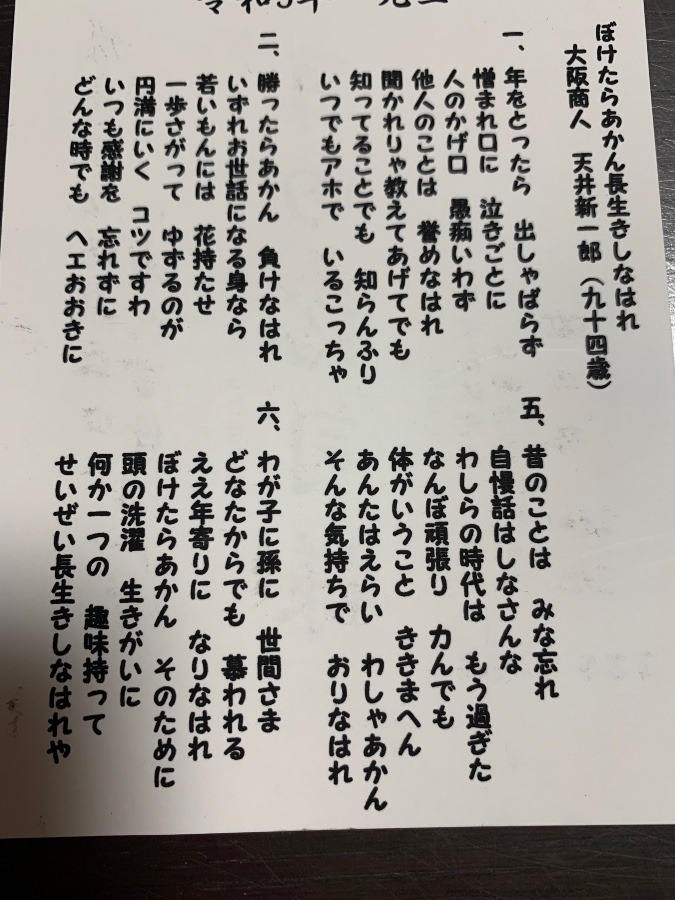 ぼけたらあかん長生きしなはれ
大阪商人 天井新一郎(九十四歳)
一、年をとったら 出しゃばらず
憎まれ口に 泣きごとに
人のかげ口 愚痴いわず
他人のことは 誉めなはれ
聞かれりゃ教えてあげてでも
知ってることでも 知らんふり
いつでもアホで いるこっちゃ
二、勝ったらあかん 負けなはれ
いずれお世話になる身なら
若いもんには 花持たせ
一歩さがって ゆずるのが
円満にいく コツですわ
いつも感謝を 忘れずに
どんな時でも ヘエおおきに
五、昔のことは みな忘れ
自慢話はしなさんな
わしらの時代は もう過ぎた
なんぼ頑張り 力んでも
体がいうこと ききまへん
あんたはえらい わしゃあかん
そんな気持ちで おりなはれ
六、わが子に孫に 世間さま
どなたからでも 慕われる
ええ年寄りに なりなはれ
ぼけたらあかん そのために
頭の洗濯 生きがいに
何か一つの 趣味持って
せいぜい長生きしなはれや